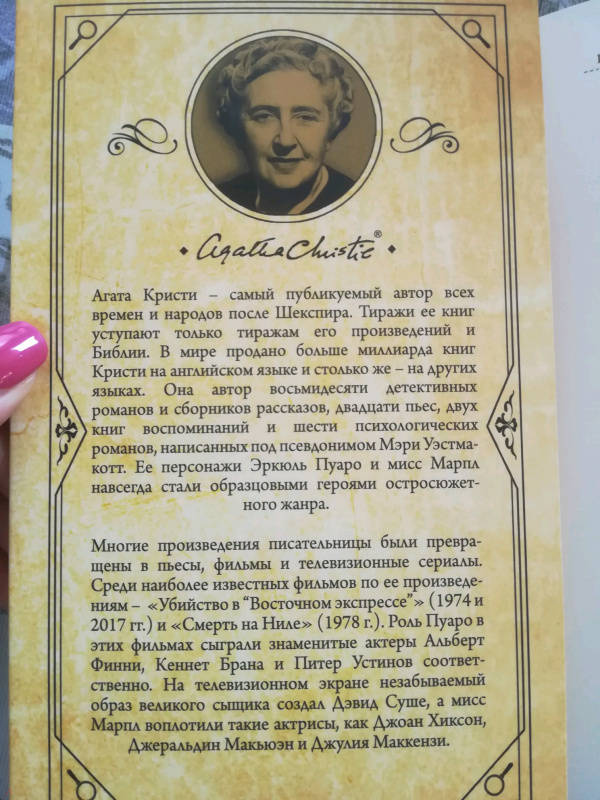 Agatha Christie®
Агата Кристи – самый публикуемый автор всех
времен и народов после Шекспира. Тиражи ее книг
уступают только тиражам его произведений и
Библии. В мире продано больше миллиарда книг
Кристи на английском языке и столько же – на других
языках. Она автор восьмидесяти детективных
романов и сборников рассказов, двадцати пьес, двух
книг воспоминаний и шести психологических
романов, написанных под псевдонимом Мэри Уэстма-
котт. Ее персонажи Эркюль Пуаро и мисс Марпл
навсегда стали образцовыми героями остросюжет-
ного жанра.
Многие произведения писательницы были превра-
щены в пьесы, фильмы и телевизионные сериалы.
Среди наиболее известных фильмов по ее произведе-
ниям – «Убийство в “Восточном экспрессе”» (1974 и
2017 гг.) и «Смерть на Ниле» (1978 г.). Роль Пуаро в
этих фильмах сыграли знаменитые актеры Альберт
Финни, Кеннет Брана и Питер Устинов соответ-
ственно. На телевизионном экране незабываемый
образ великого сыщика создал Дэвид Суше, а мисс
Марпл воплотили такие актрисы, как Джоан Хиксон,
Джеральдин Макьюэн и Джулия Маккензи.